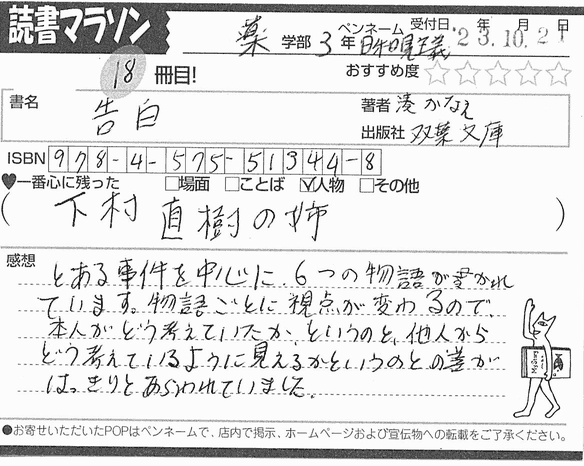 読書マラソン
薬 学部 3 年 ペンネーム 日和見主義 受付日 '23.年10.月21日
18 冊目!
おすすめ度 ☆☆☆☆☆
書名 告白
著者 湊かなえ
出版社 双葉文庫
ISBN 978-4-575-51344-8
♥一番心に残った □場面 □ことば ☑人物 □その他
( 下村 直樹の姉 )
感想
とある事件を中心に、6つの物語が書かれ
ています。物語ごとに視点が変わるので、
本人がどう考えていたか、というのと、他人から
どう考えているように見えるかというのとの差が
はっきりとあらわれていました。
●お寄せいただいたPOPはペンネームで、店内で掲示、ホームページおよび宣伝物への転載をご了承ください。